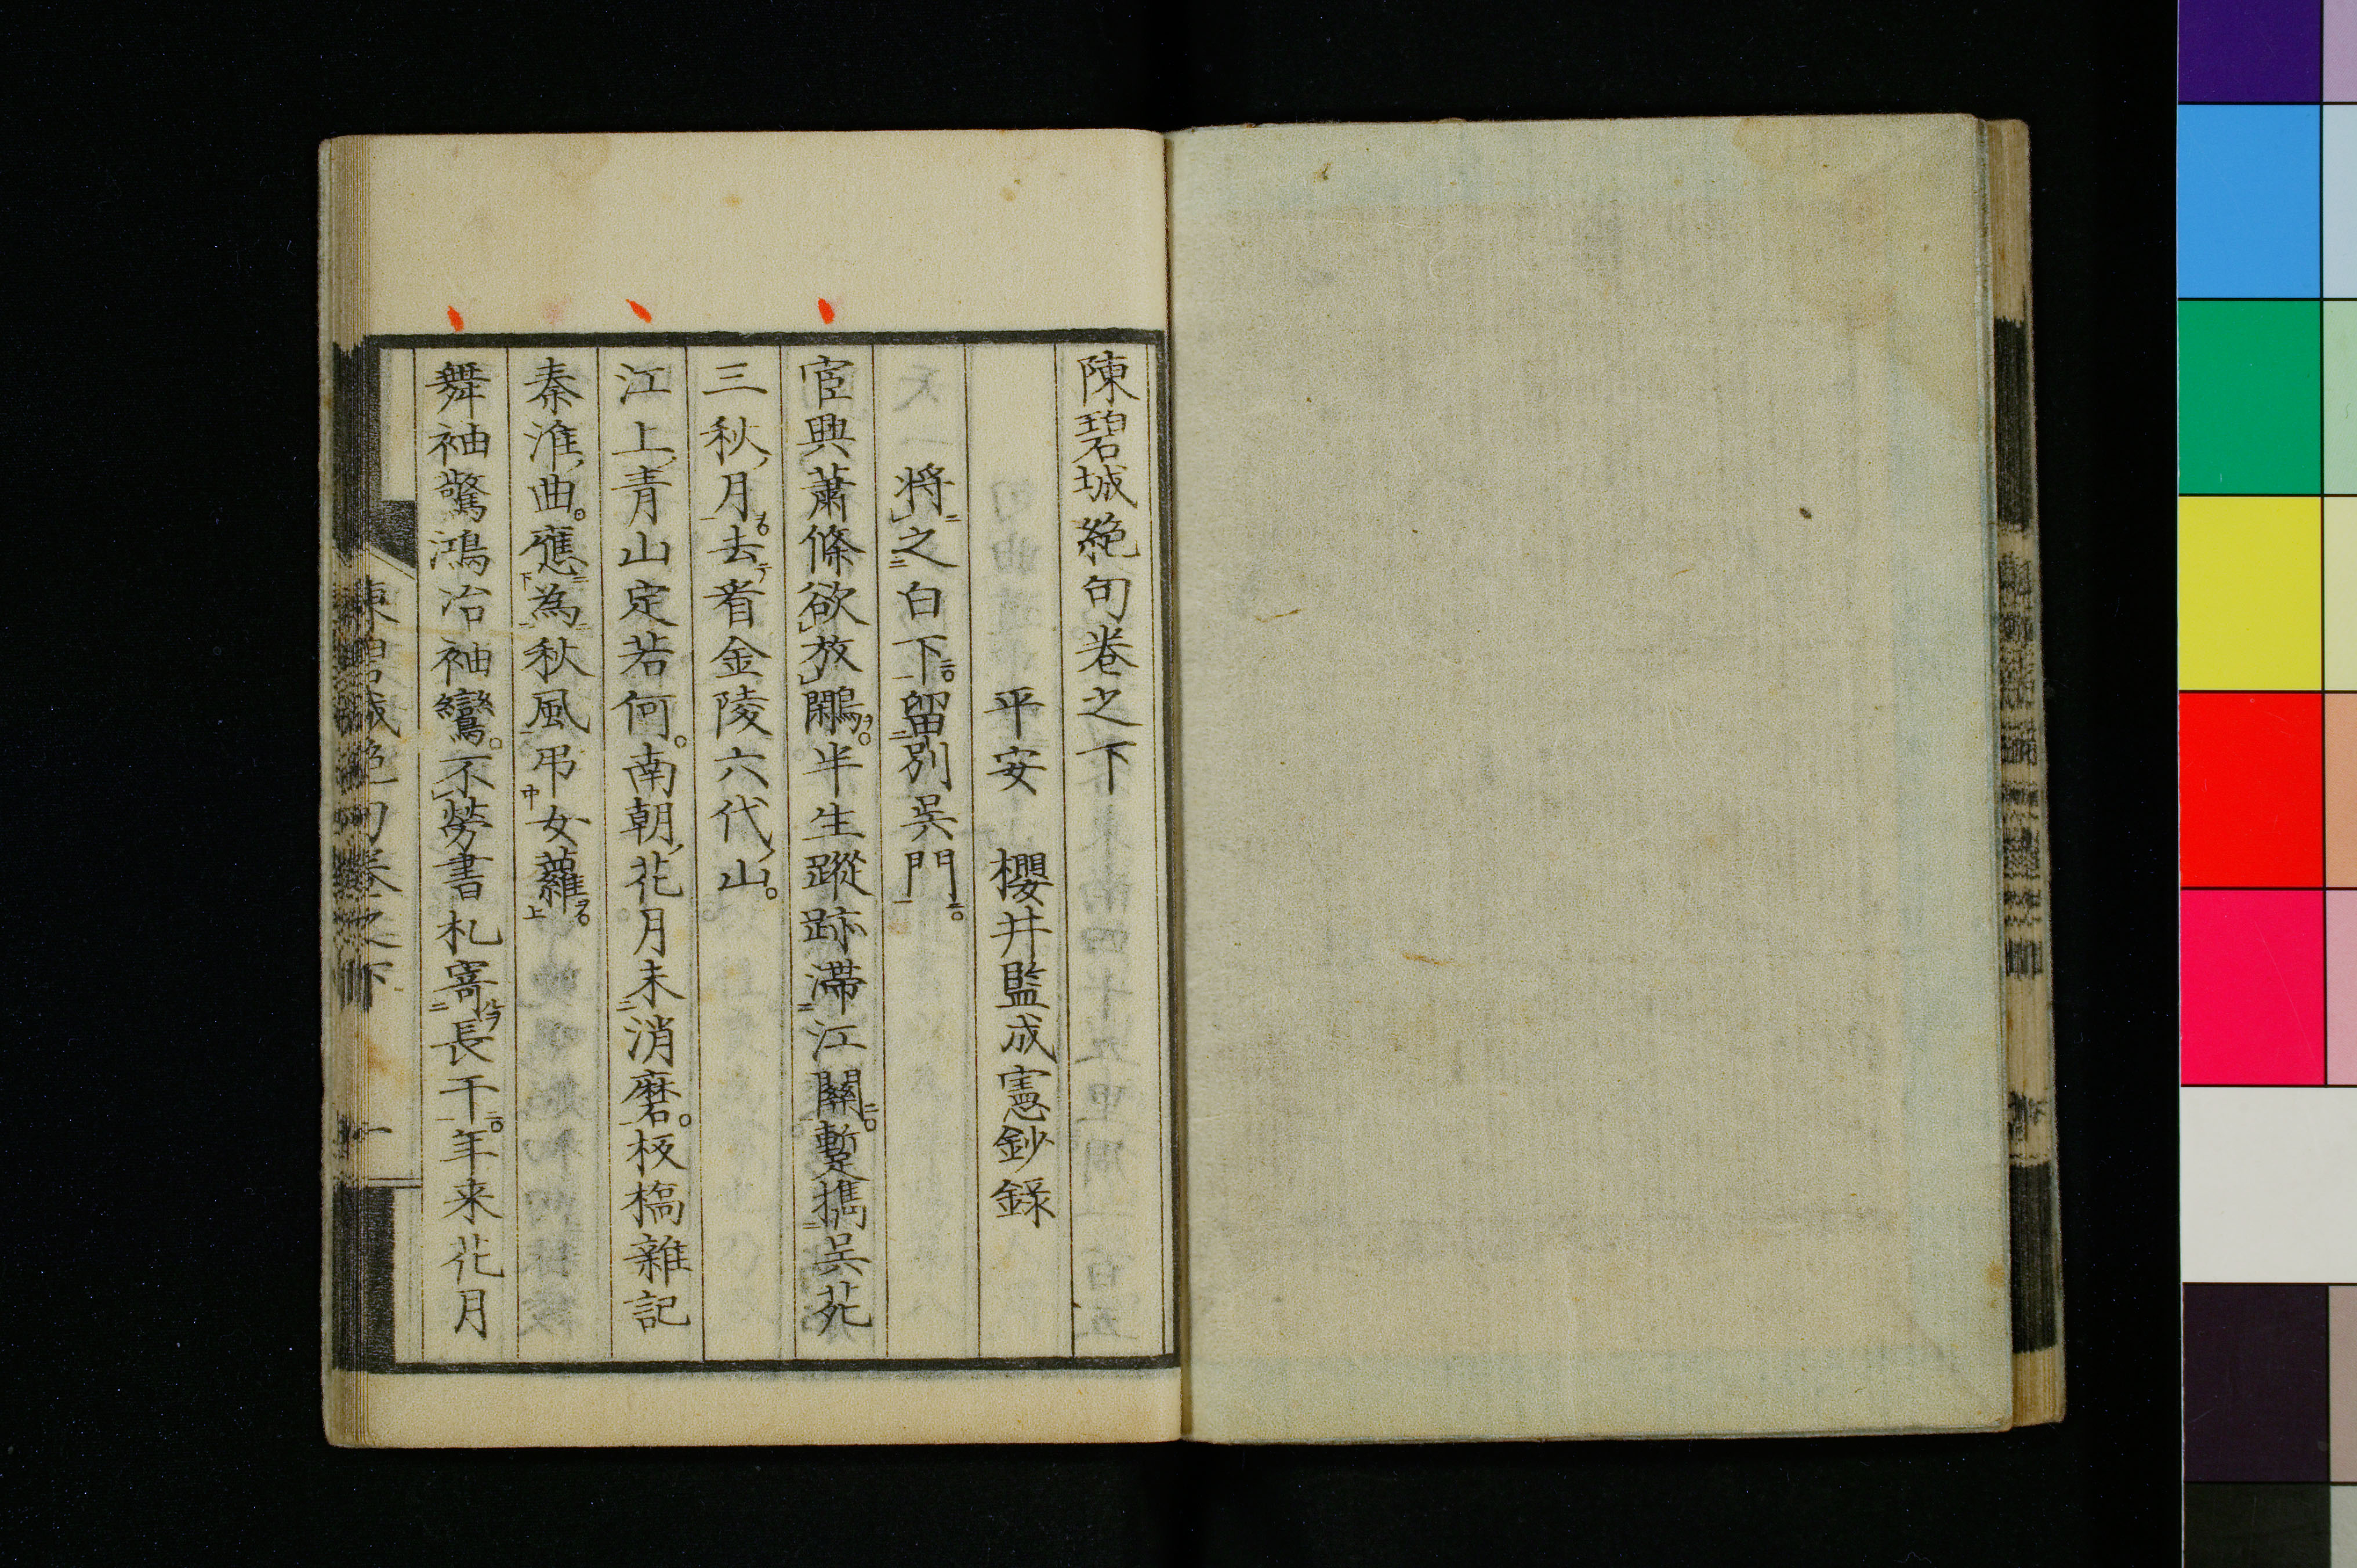 陳碧城絶句卷之下
平安 櫻井監成憲鈔録
將之白下留別吳門
宦興蕭條欲放鷳半生蹤跡滯江關蹔攜吳苑
三秋月去看金陵六代山
江上青山定若何南朝花月未消磨板橋雜記
秦淮曲應為秋風弔女蘿
舞袖驚鴻冶袖鸞不勞書札寄長干年来花月
陳碧城絶句卷之下 一